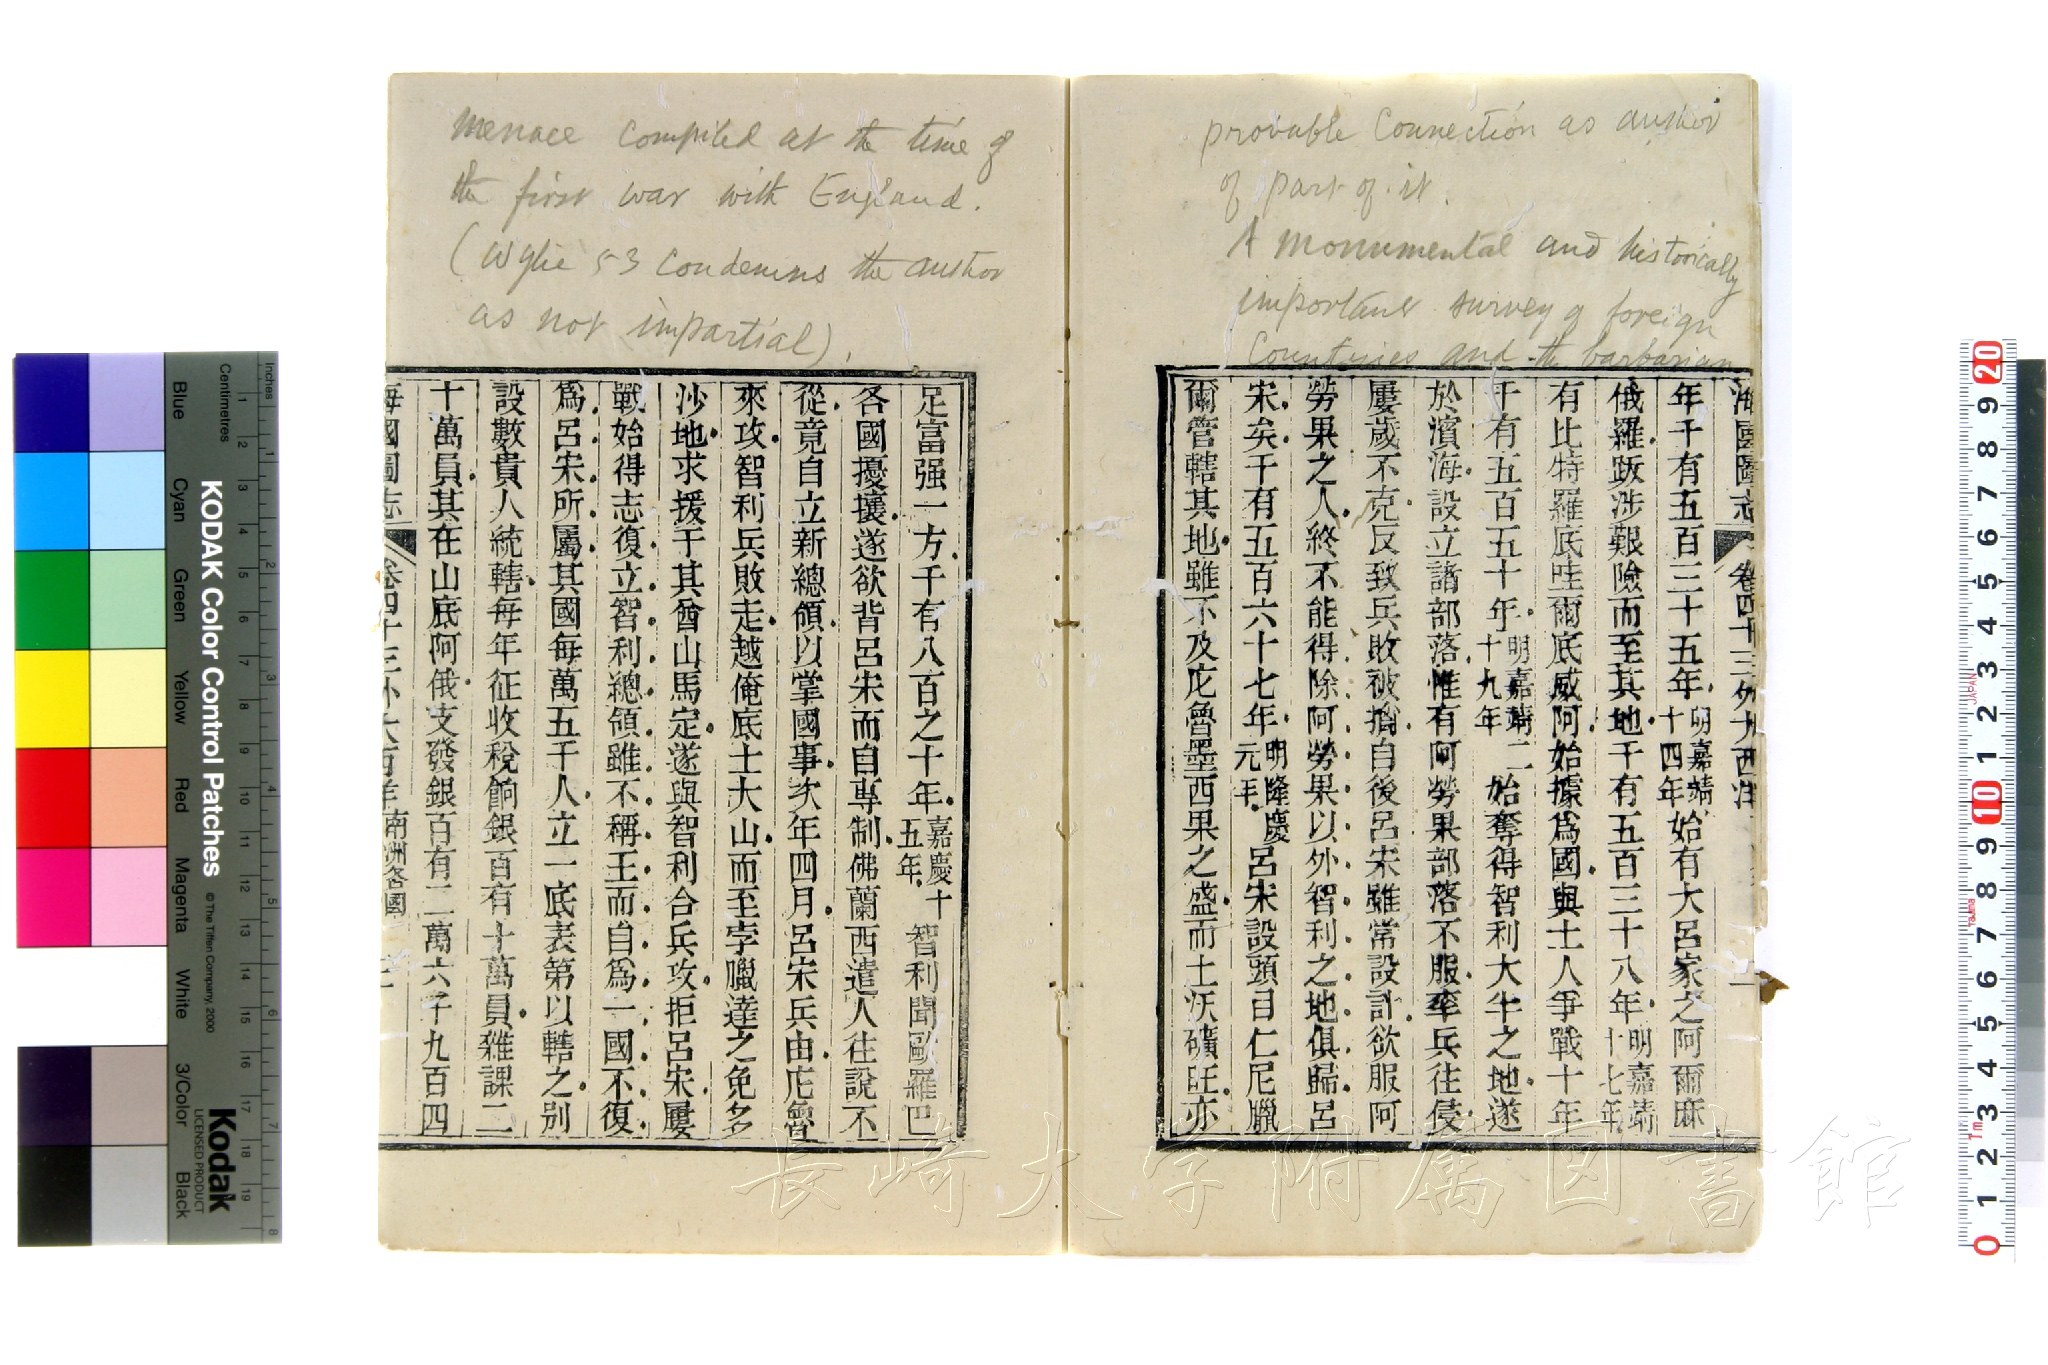 provable Connection as author
of part of it.
A monumental and historically
important survey of foreign
Countries and the barbarian
海國圖志 卷四十三外大西洋
年千有五百三十五年明嘉靖十四年始有大呂家之阿爾麻
俄羅跋涉艱險而至其地千有五百三十八年明嘉靖十七年
有比特羅底哇爾底威阿始據為國與土人爭戰十年
千有五百五十年明嘉靖二十九年始奪得智利大半之地遂
於濱海設立諸部落惟有阿勞果部落不服率兵往侵
屢歲不克反致兵敗被擒自後呂宋雖常設計欲服阿
勞果之人終不能得除阿勞果以外智利之地俱歸呂
宋矣千有五百六十七年明隆慶元年呂宋設頭目仁尼臘
爾管轄其地雖不及庀魯墨西果之盛而土沃礦旺亦
menace compiled at the time of
the first war with England.
(Wylie 53 condemns the author
as not impartial).
足富强一方千有八百之十年嘉慶十五年智利聞歐羅巴
各國擾壤遂欲背呂宋而自專制佛蘭西遣人往說不
從竟自立新總領以掌國事次年四月呂宋兵由庀魯
來攻智利兵敗走越俺底士大山而至孛臘達之免多
沙地求援于其酋山馬定遂與智利合兵攻拒呂宋屢
戰始得志復立智利總領雖不稱王而自為一國不復
為呂宋所屬其國每萬五千人立一底表第以轄之別
設數貴人統轄每年征收稅餉銀百有十萬員雜課二
十萬員其在山底阿俄支發銀百有二萬六千九百四
海國圖志 卷四十三外大西洋南洲各國 二
KODAK Color Control Patches
© The Tiffen Company, 2000
Kodak
LICENSED PRODUCT
Inches
Centimetres
Blue Cyan Green Yellow Red Magenta White 3/Color Black
長崎大学附属図書館